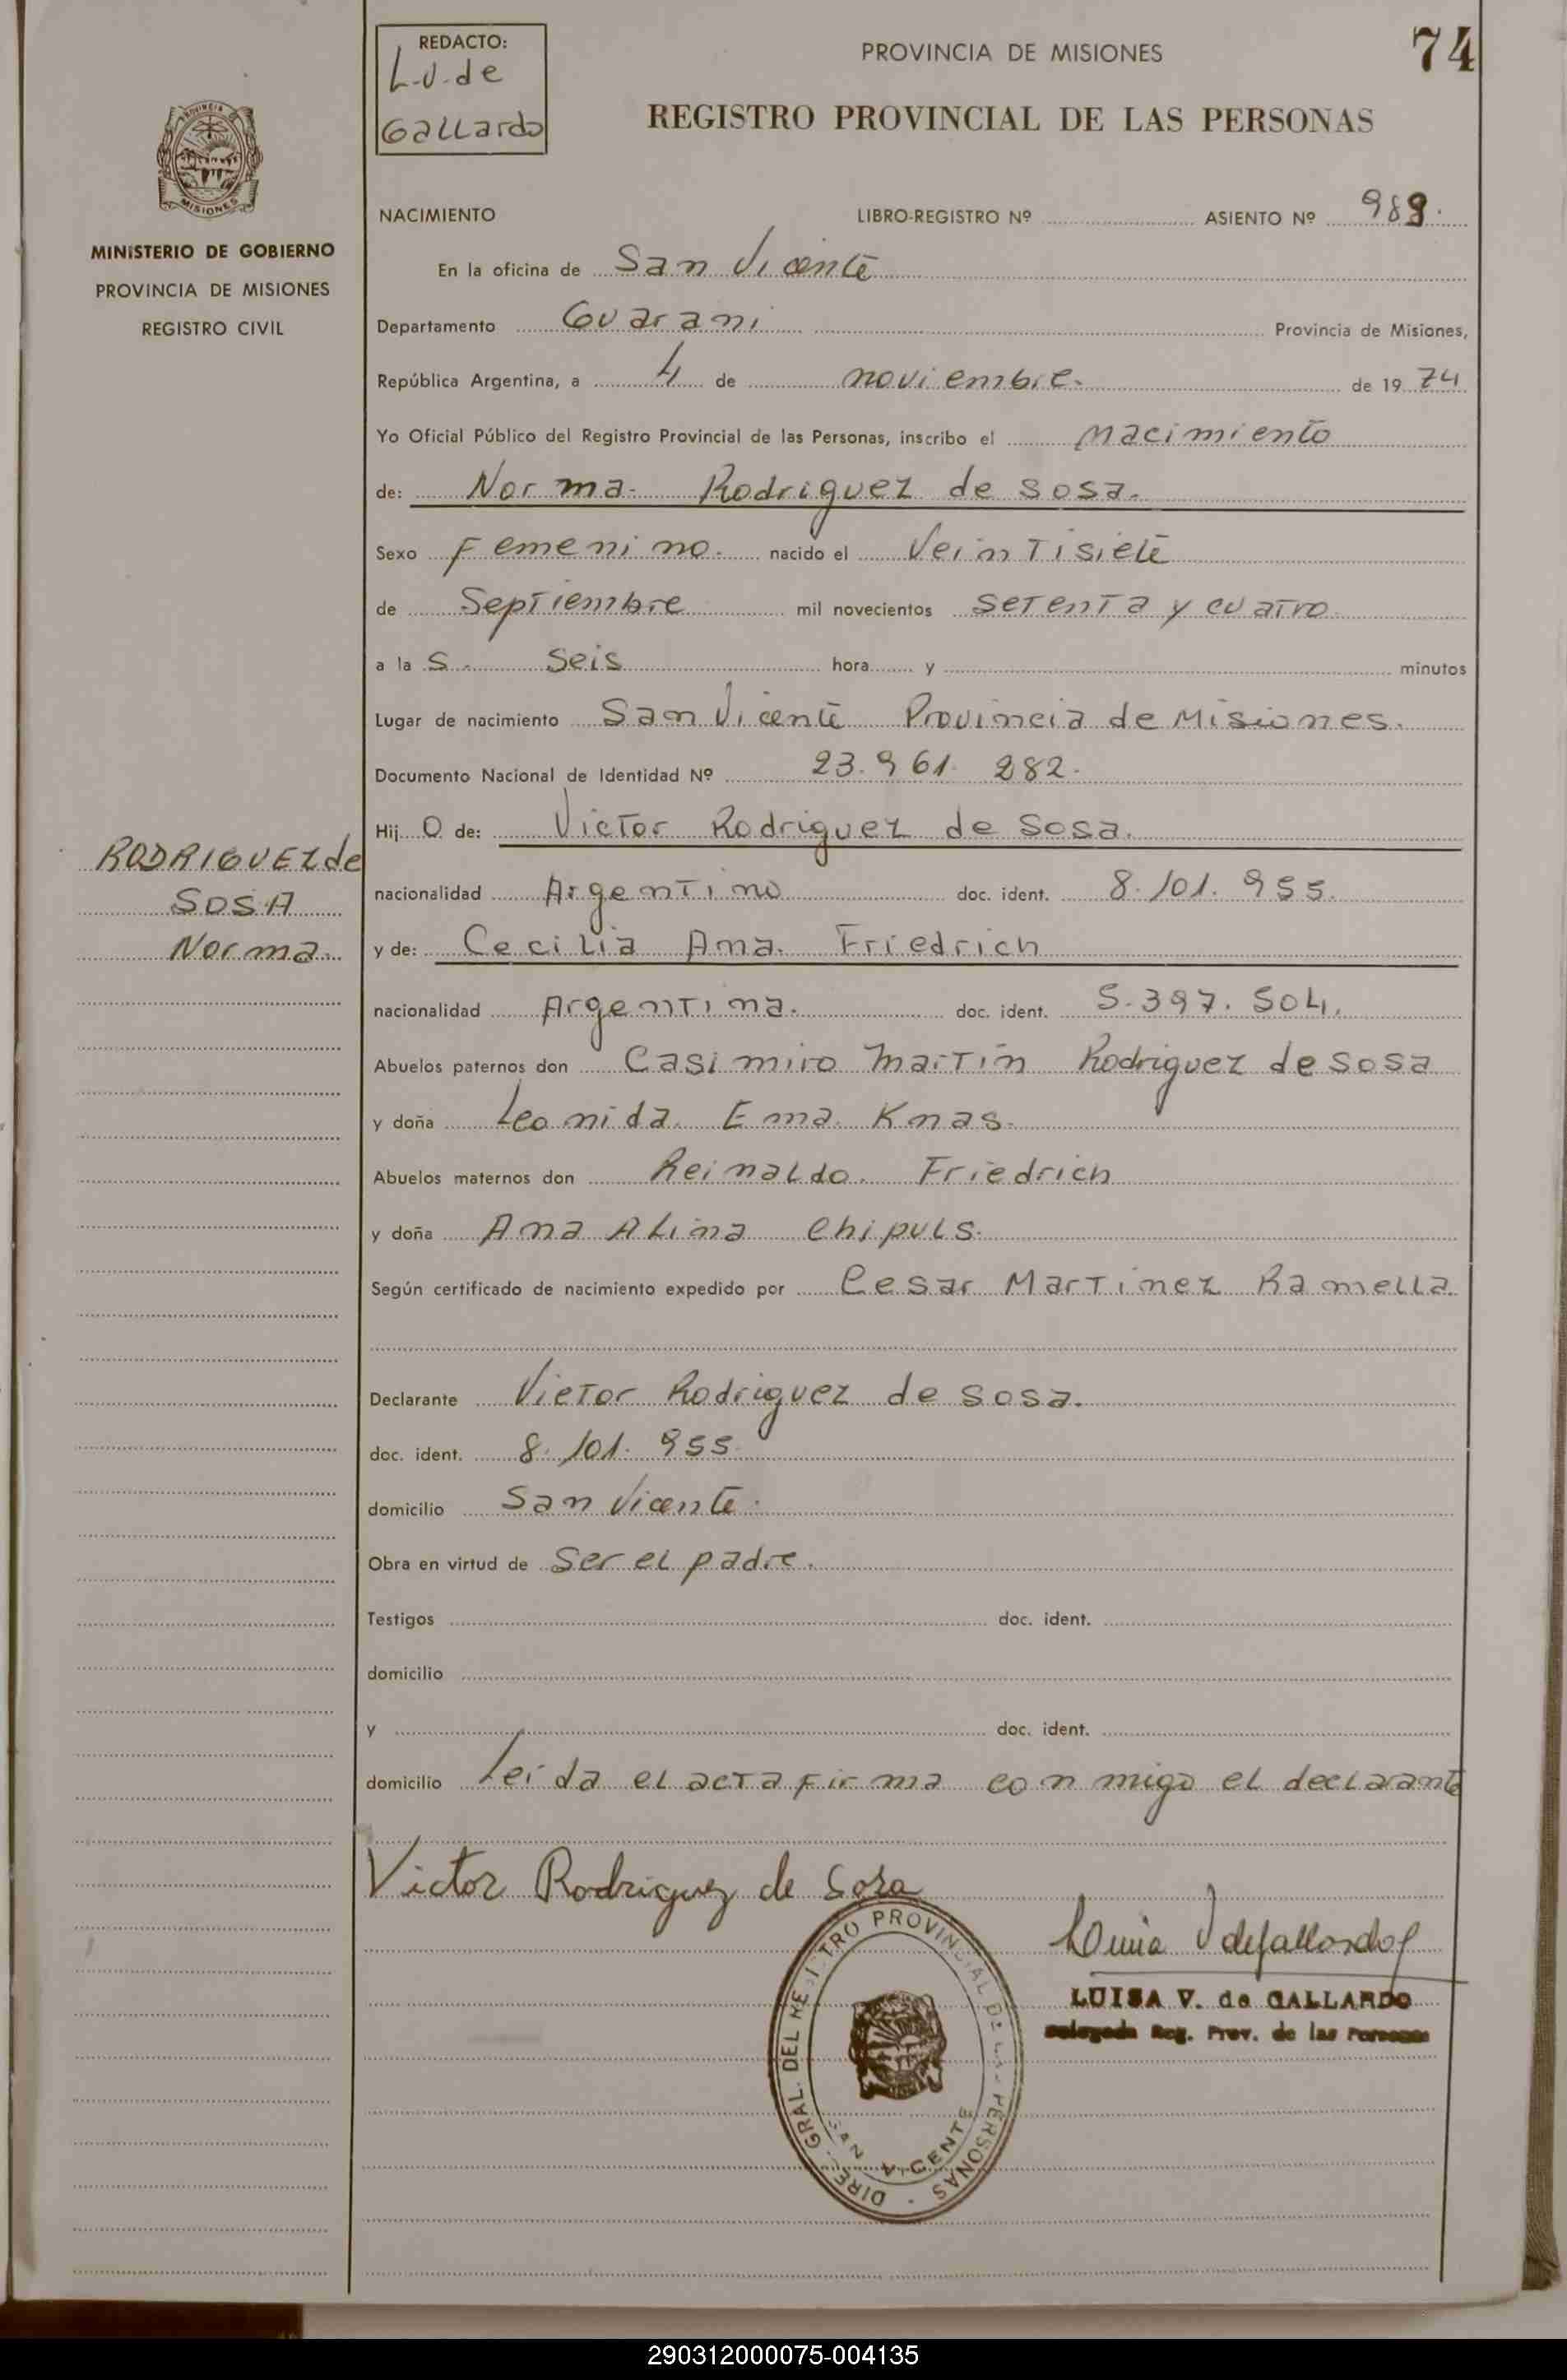 REDACTO:
L.V. de
Gallardo
PROVINCIA DE MISIONES
74
REGISTRO PROVINCIAL DE LAS PERSONAS
MISIONES
MINISTERIO DE GOBIERNO
PROVINCIA DE MISIONES
REGISTRO CIVIL
NACIMIENTO LIBRO-REGISTRO Nº ASIENTO Nº 989.
En la oficina de San Vicente
Departamento Guarani Provincia de Misiones,
República Argentina, a 4 de noviembre. de 1974
Yo Oficial Público del Registro Provincial de las Personas, inscribo el Nacimiento
de: Norma. Rodriguez de Sosa.
Sexo Femenino. nacido el Veintisiete
de Septiembre mil novecientos Setenta y cuatro
a la s. Seis hora y minutos
Lugar de nacimiento San Vicente Provincia de Misiones.
Documento Nacional de Identidad Nº 23.961.282.
Hij O de: Victor Rodriguez de Sosa.
nacionalidad Argentino doc. ident. 8.101.955.
y de: Cecilia Ana. Friedrich
nacionalidad Argentina. doc. ident. 5.397.504.
Abuelos paternos don Casimiro Martin Rodriguez de Sosa
y doña Leonida. Ema Knas.
Abuelos maternos don Reinaldo. Friedrich
y doña Ana Alina Chipuls.
Según certificado de nacimiento expedido por Cesar Martinez Ramella.
Declarante Victor Rodriguez de Sosa.
doc. ident. 8.101.955
domicilio San Vicente.
Obra en virtud de Ser el padre.
Testigos doc. ident.
domicilio
y doc. ident.
domicilio Leida el acta firma conmigo el declarante
RODRIGUEZ de
SOSA
Norma.
Victor Rodriguez de Sosa
Luisa V de Gallardo
LUISA V. de GALLARDO
Delegada Reg. Prov. de las Personas
DIREC. GRAL. DEL REGISTRO PROVINCIAL DE LAS PERSONAS
SAN VICENTE
290312000075-004135